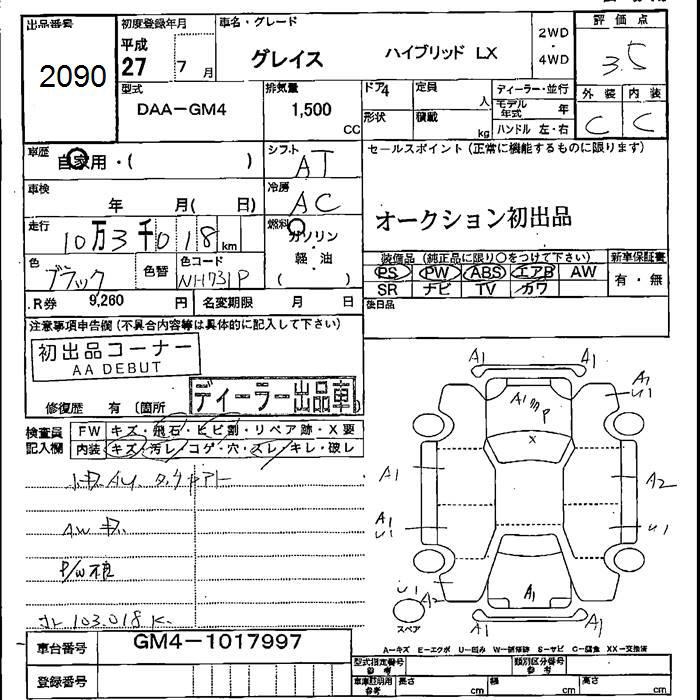 出品番号
2090
初度登録年月
平成
27 7月
車名・グレード
グレイス ハイブリッド LX
2WD
・
4WD
評価点
3.5
外装 内装
C C
型式
DAA-GM4
排気量
1,500
CC
ドア4
形状
定員
人
積載
kg
ディーラー・並行
モデル年式 年
ハンドル 左・右
車歴
自家用・( )
シフト
AT
セールスポイント (正常に機能するものに限ります)
オークション初出品
車検
年 月( 日)
冷房
AC
走行
10万3千018km
燃料
ガソリン
軽・油
( )
色
ブラック
色替
色コード
NH731P
装備品 (純正品に限り○をつけて下さい)
PS PW ABS エアB AW
SR ナビ TV カワ
新車保証書
有・無
R券 9,260 円
名変期限 月 日
後日品
注意事項申告欄 (不具合内容等は具体的に記入して下さい)
初出品コーナー
AA DEBUT
ディーラー出品車
修復歴 有 (箇所
検査員
記入欄
FW キズ・飛石・ヒビ割・リペア跡・X要
内装 キズ・汚レ・コゲ・穴・スレ・キレ・破レ
AW キズ
103.018K
A1 A1
A1
U1
A1
P
X
A1 A2
A1
U1
U1
U1
A2
A1
A1 A1
スペア
A-キズ E-エクボ U-凹み W-補修跡 S-サビ C-腐食 XX-交換済
車台番号 GM4-1017997
登録番号
型式指定番号
参考
類別区分番号
参考
車庫証明用
参考
長さ cm 幅 cm 高さ cm